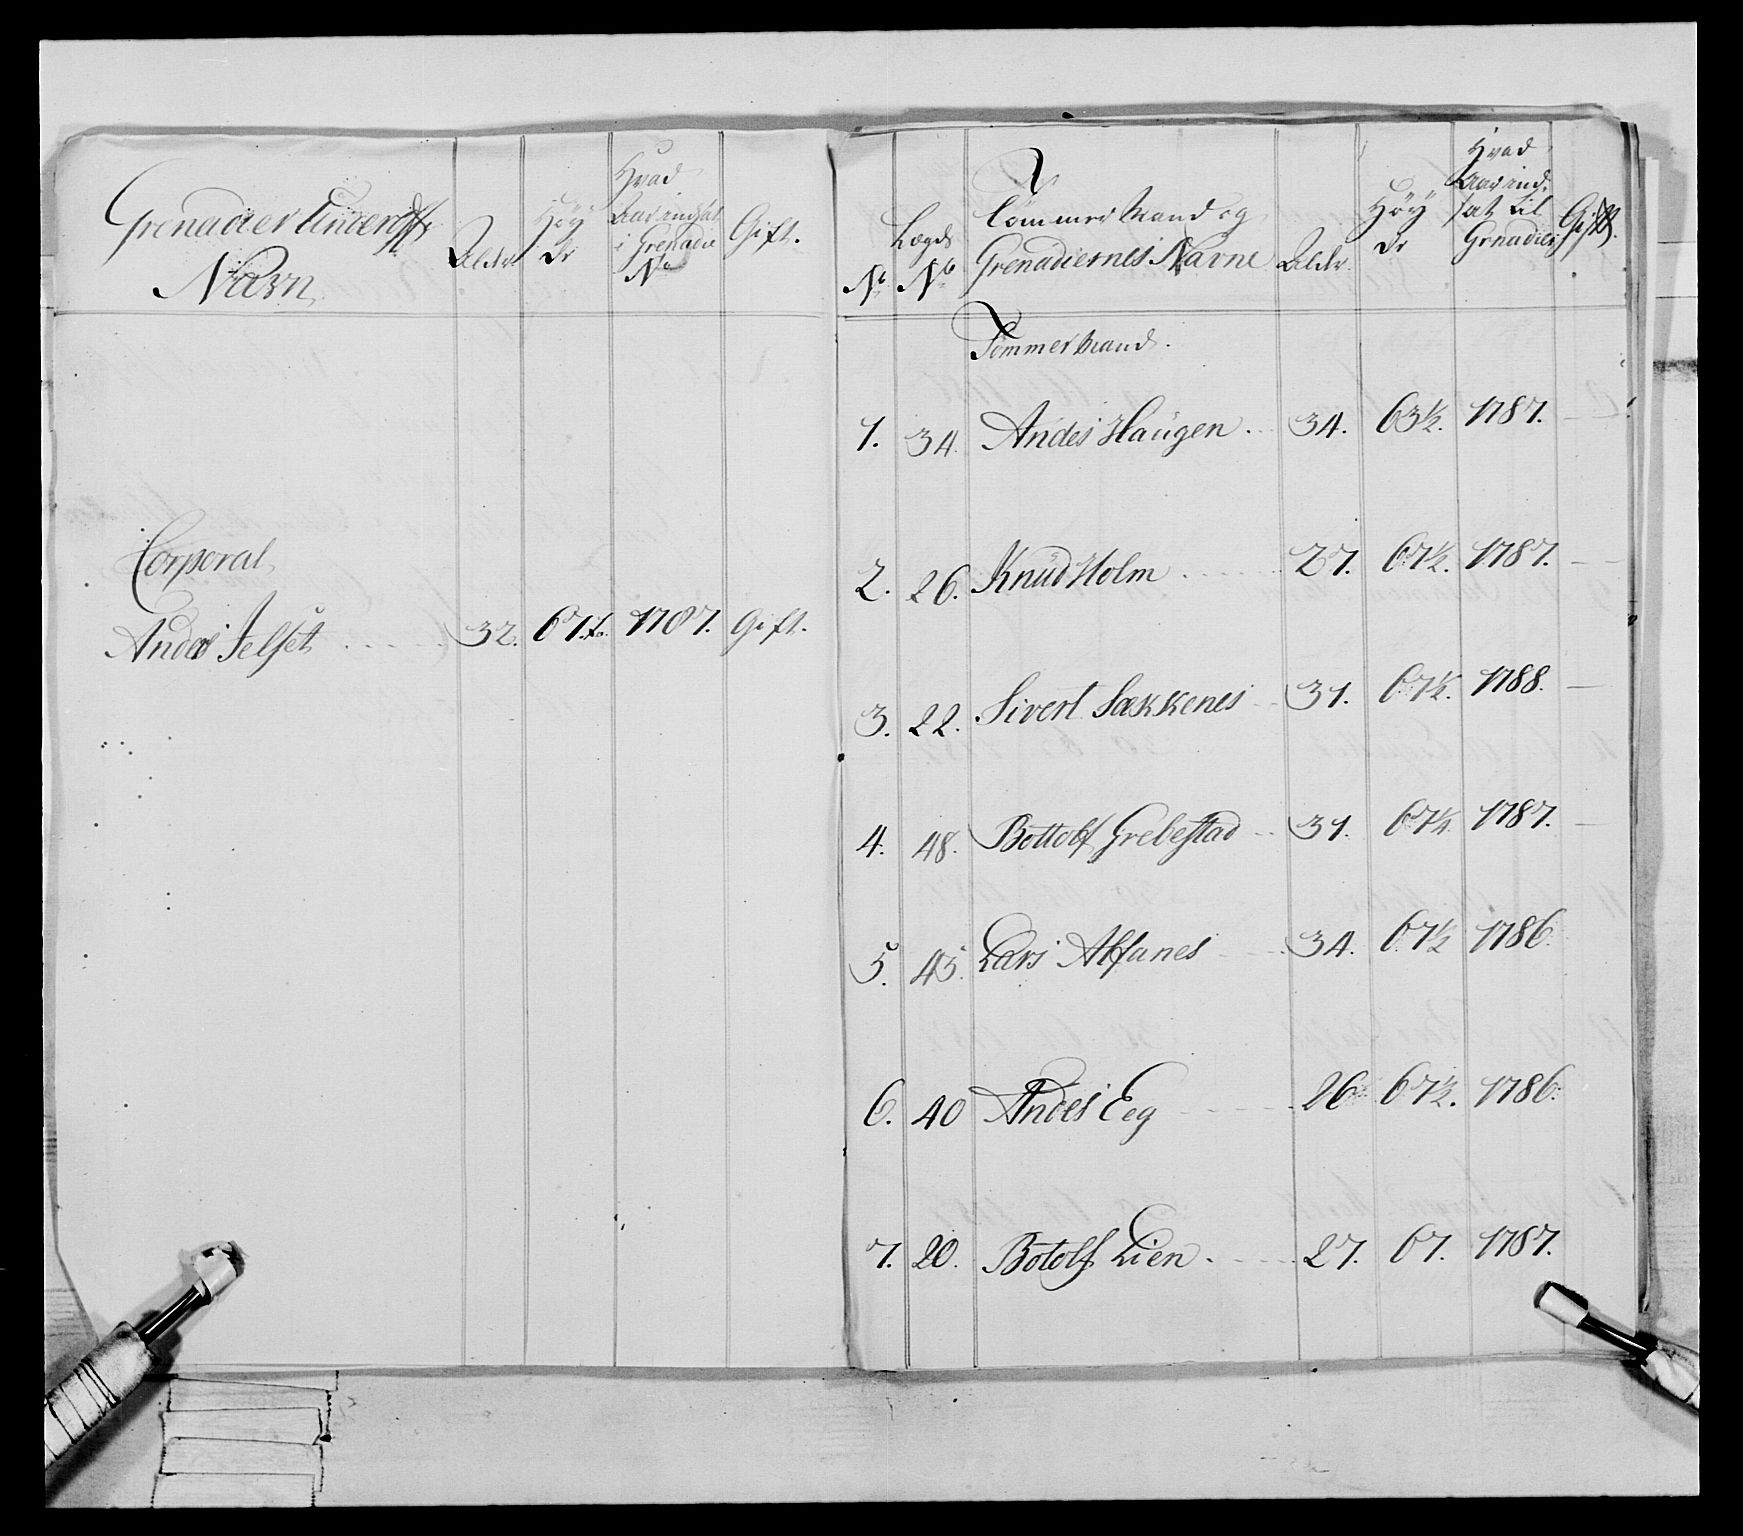 Grenadeer Underoff:
Navn
Alder
Höy
de
Hvad
Aar indsat
i Grenadr
No
Gift.
Corporal
Anders Jelset 32. 67. 1787. Gift.
No
Lægds
No
Tömmermand og
Grenadiernes Navne
Alder
Höy
de
Hvad
Aar ind.
sat til
Grenadier
Gift.
Tömmermand.
1. 34. Andes Haugen. 34. 63½. 1787. —
2. 26. Knud Holm 27. 67½. 1787. —
3. 22. Sivert Sækkenes 31. 67½. 1788. —
4. 48. Bottolf Grebestad 31. 67¼. 1787. —
5. 45. Lars Alfanes 34. 67½ 1786.
6. 40 Andes Eeg 26 67½. 1786.
7. 20. Botolf Lien 27. 67. 1787.